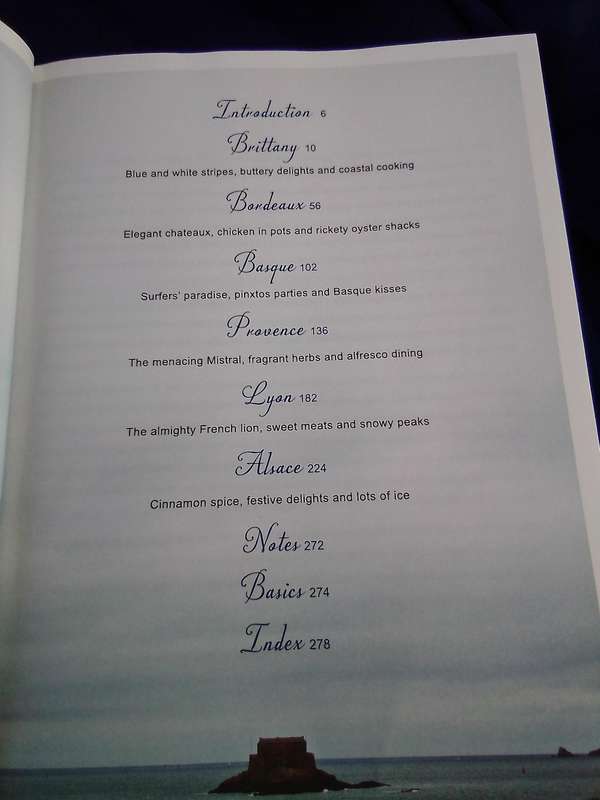 Introduction 6
Brittany 10
Blue and white stripes, buttery delights and coastal cooking
Bordeaux 56
Elegant chateaux, chicken in pots and rickety oyster shacks
Basque 102
Surfers' paradise, pinxtos parties and Basque kisses
Provence 136
The menacing Mistral, fragrant herbs and alfresco dining
Lyon 182
The almighty French lion, sweet meats and snowy peaks
Alsace 224
Cinnamon spice, festive delights and lots of ice
Notes 272
Basics 274
Index 278